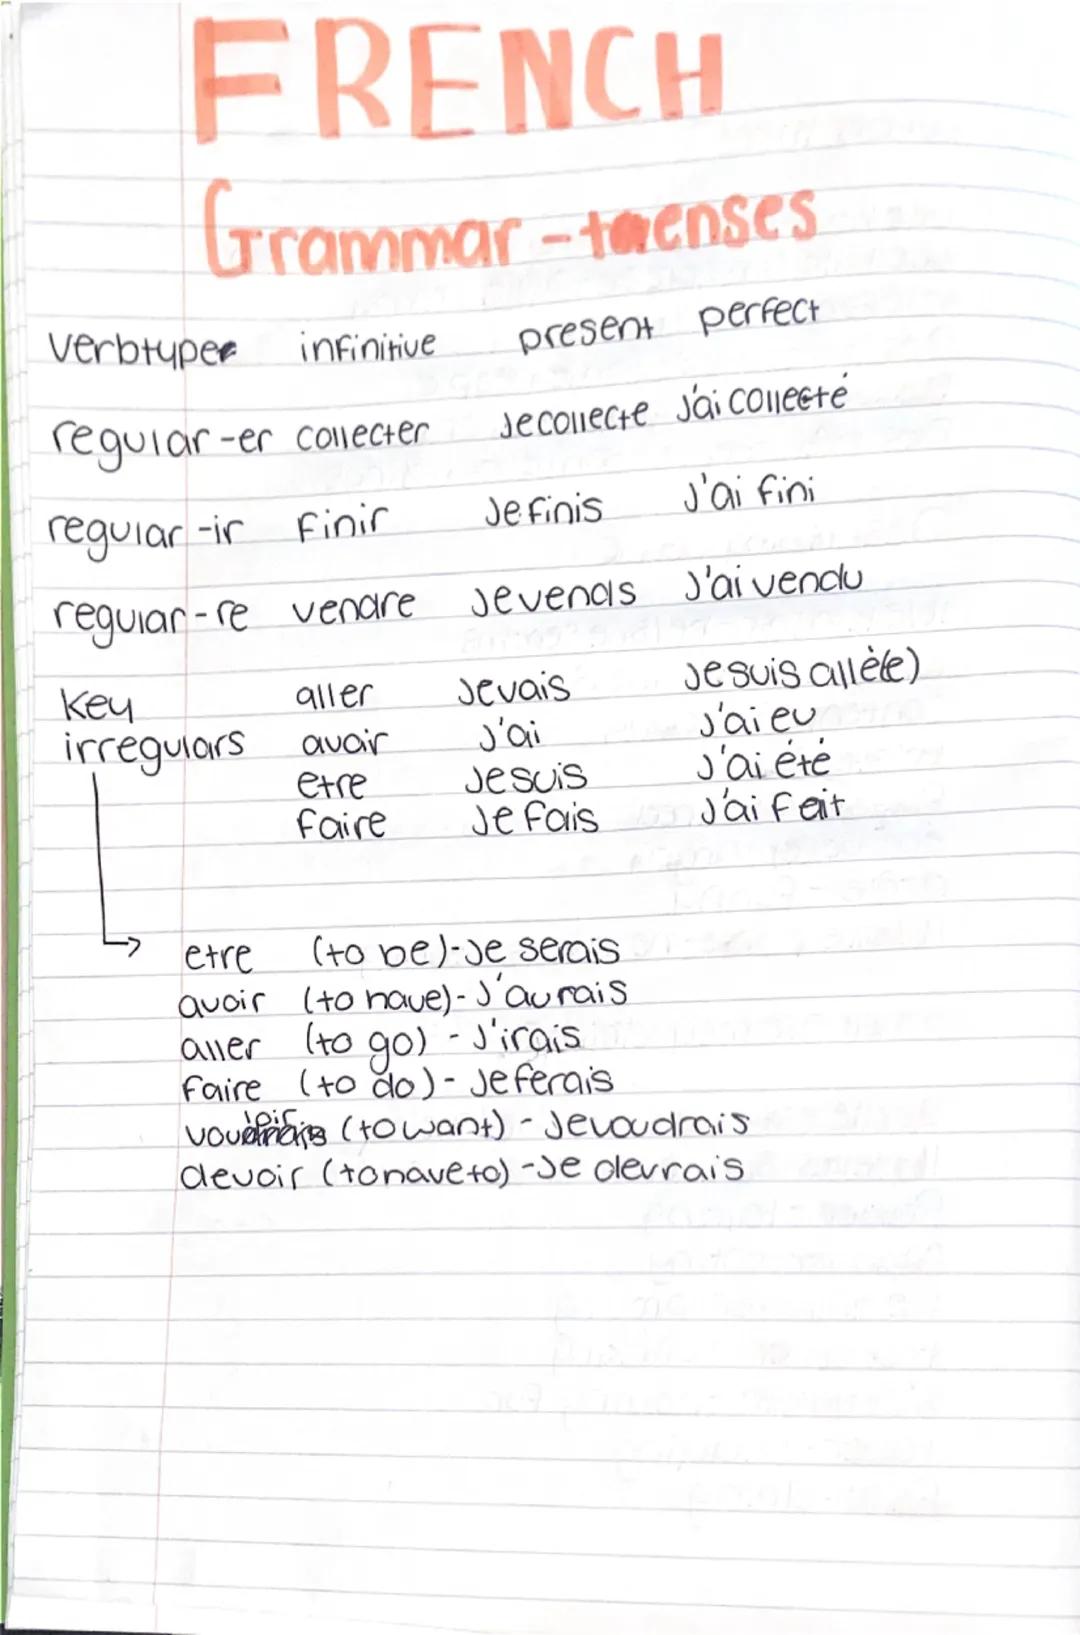 FRENCH
Grammar - tenses
verbtype infinitive present perfect
regular -er collecter Je collecte J'ai collecté
regular -ir Finir Je finis J'ai fini
regular -re vendre Je vends J'ai vendu
Key aller Je vais Je suis allé(e)
irregulars avoir J'ai J'ai eu
etre Je suis J'ai été
faire Je fais J'ai fait
etre (to be) - Je serais
avoir (to have) - J'aurais
aller (to go) - J'irais
faire (to do) - Je ferais
vouloir (to want) - Je voudrais
devoir (to have to) - Je devrais